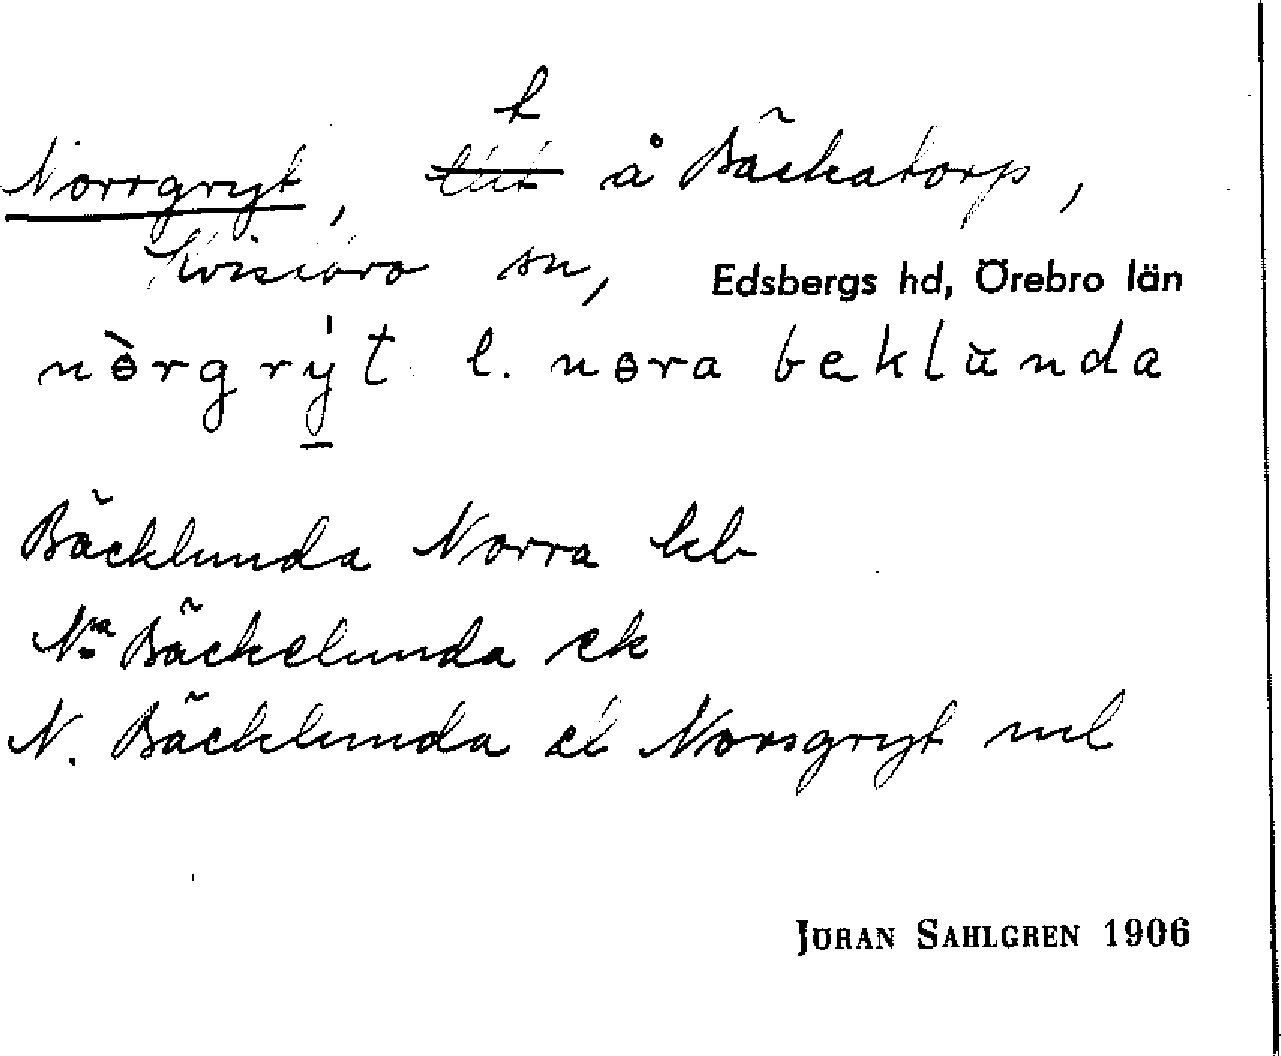 t
Norrgryt, å Bäckatorp,
Kvistbro sn, Edsbergs hd, Örebro län
nèrgrýt l. nɵra bæklùnda
Bäcklunda Norra kb
N:ra Bäckelunda ek
N. Bäcklunda el Norsgryt ml
JÖRAN SAHLGREN 1906